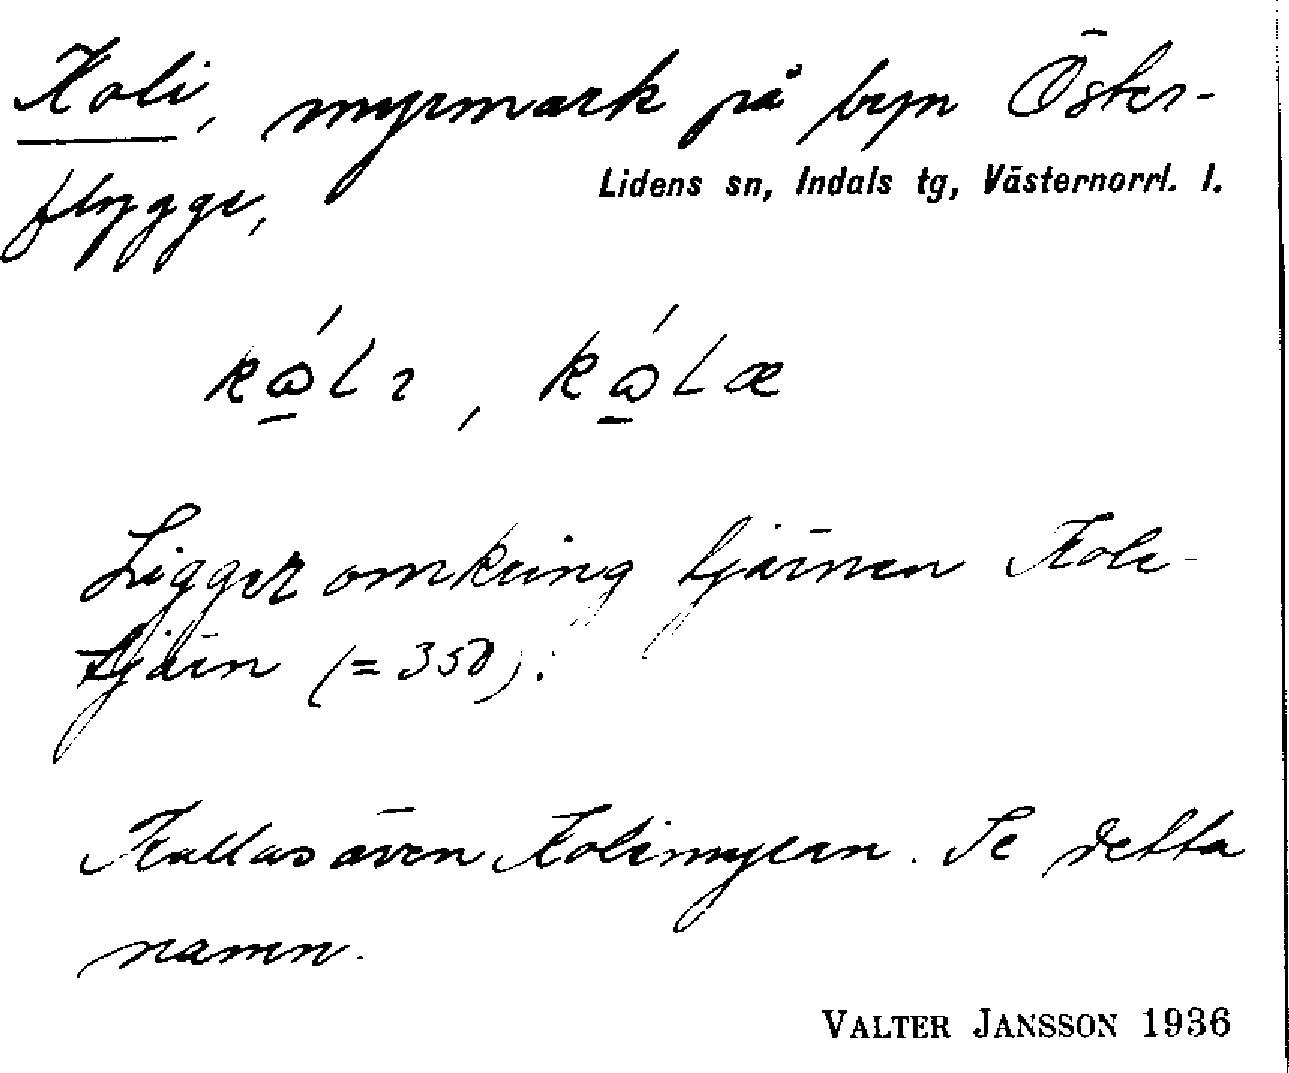 Koli, myrmark på byn Öster-
flygge,
Lidens sn, Indals tg, Västernorrl. l.
kώ̲lɪ, kώ̲læ
Ligger omkring tjärnen Kole-
tjärn (= 350).
Kallas även Kolimyran. Se detta
namn.
VALTER JANSSON 1936